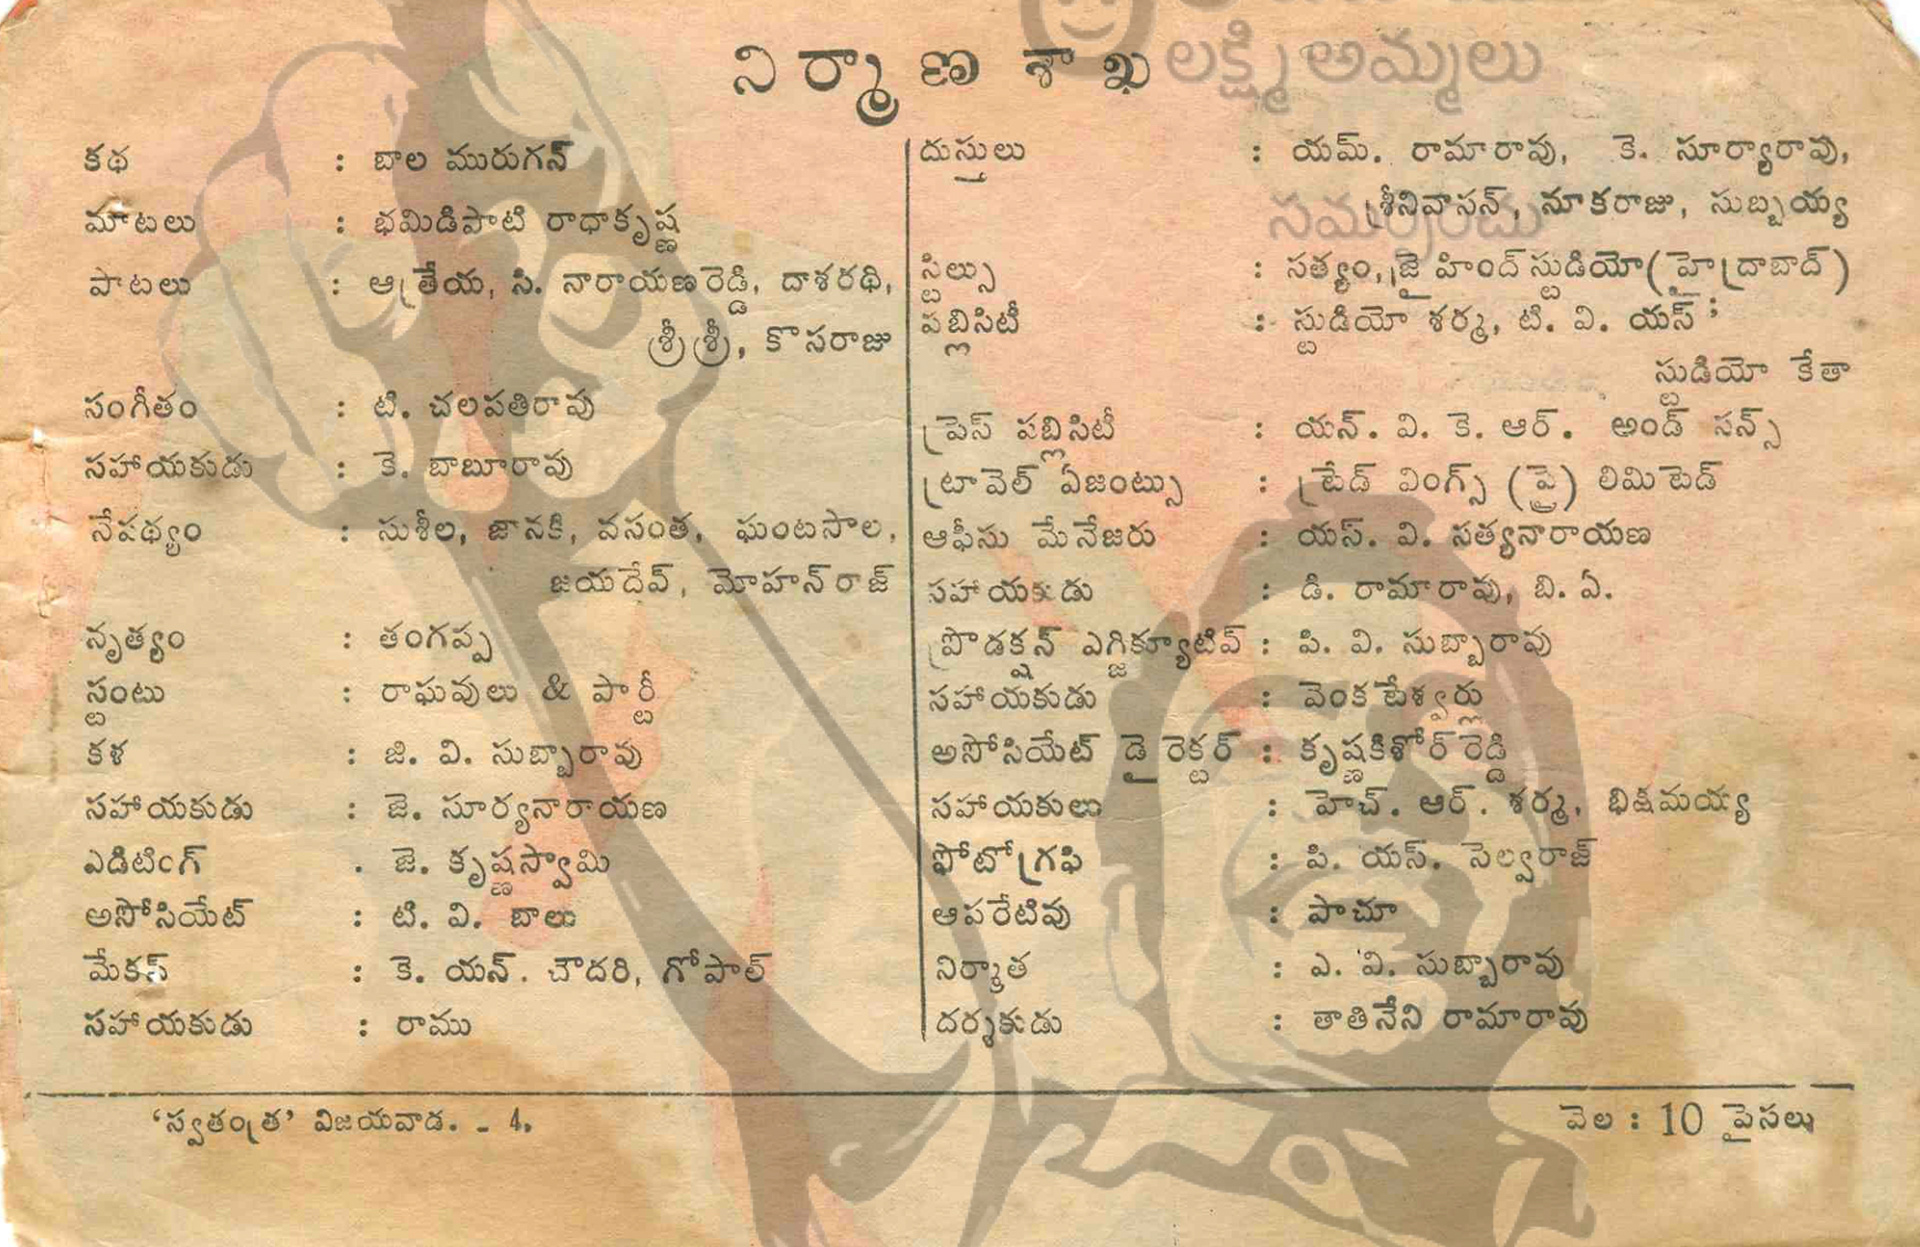 నిర్మాణ శాఖ
లక్ష్మి అమ్మలు
కథ : బాల మురుగన్
మాటలు : భమిడిపాటి రాధాకృష్ణ
పాటలు : ఆత్రేయ, సి. నారాయణరెడ్డి, దాశరథి,
శ్రీశ్రీ, కొసరాజు
సంగీతం : టి. చలపతిరావు
సహాయకుడు : కె. బాబూరావు
నేపథ్యం : సుశీల, జానకి, వసంత, ఘంటసాల,
జయదేవ్, మోహన్ రాజ్
నృత్యం : తంగప్ప
స్టంటు : రాఘవులు & పార్టీ
కళ : జి. వి. సుబ్బారావు
సహాయకుడు : జె. సూర్యనారాయణ
ఎడిటింగ్ . జె. కృష్ణస్వామి
అసోసియేట్ : టి. వి. బాలు
మేకస్ : కె. యన్. చౌదరి, గోపాల్
సహాయకుడు : రాము
దుస్తులు : యమ్. రామారావు, కె. సూర్యారావు,
శ్రీనివాసన్, నూకరాజు, సుబ్బయ్య
సమర్పించు
స్టిల్సు : సత్యం, జై హింద్ స్టుడియో (హైద్రాబాద్)
పబ్లిసిటీ : స్టుడియో శర్మ, టి. వి. యస్ ;
స్టుడియో కేతా
ప్రెస్ పబ్లిసిటీ : యన్. వి. కె. ఆర్. అండ్ సన్స్
ట్రావెల్ ఏజంట్సు : ట్రేడ్ వింగ్స్ (ప్రై) లిమిటెడ్
ఆఫీసు మేనేజరు : యస్. వి. సత్యనారాయణ
సహాయకుడు : డి. రామారావు, బి. ఏ.
ప్రొడక్షన్ ఎగ్జిక్యూటివ్ : పి. వి. సుబ్బారావు
సహాయకుడు : వెంకటేశ్వర్లు
అసోసియేట్ డైరెక్టర్ : కృష్ణకిశోర్ రెడ్డి
సహాయకులు : హెచ్. ఆర్. శర్మ, భిక్షమయ్య
ఫోటోగ్రఫి : పి. యస్. సెల్వరాజ్
ఆపరేటివు : పాచూ
నిర్మాత : ఎ. వి. సుబ్బారావు
దర్శకుడు : తాతినేని రామారావు
'స్వతంత్ర' విజయవాడ. - 4.
వెల : 10 పైసలు